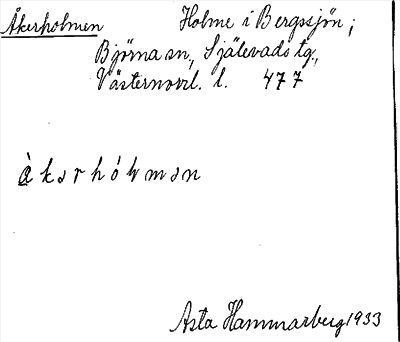 Åkerholmen Holme i Bergssjön;
Björna sn, Själevads tg.,
Västernorrl. l. 477
àkərhólmən
Asta Hammarberg 1933